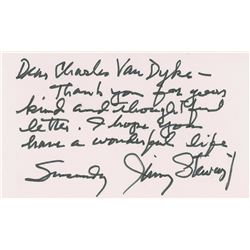 Dear Charles Van Dyke –
Thank you for your
kind and thoughtful
letter. I hope you
have a wonderful life
Sincerely Jimmy Stewart